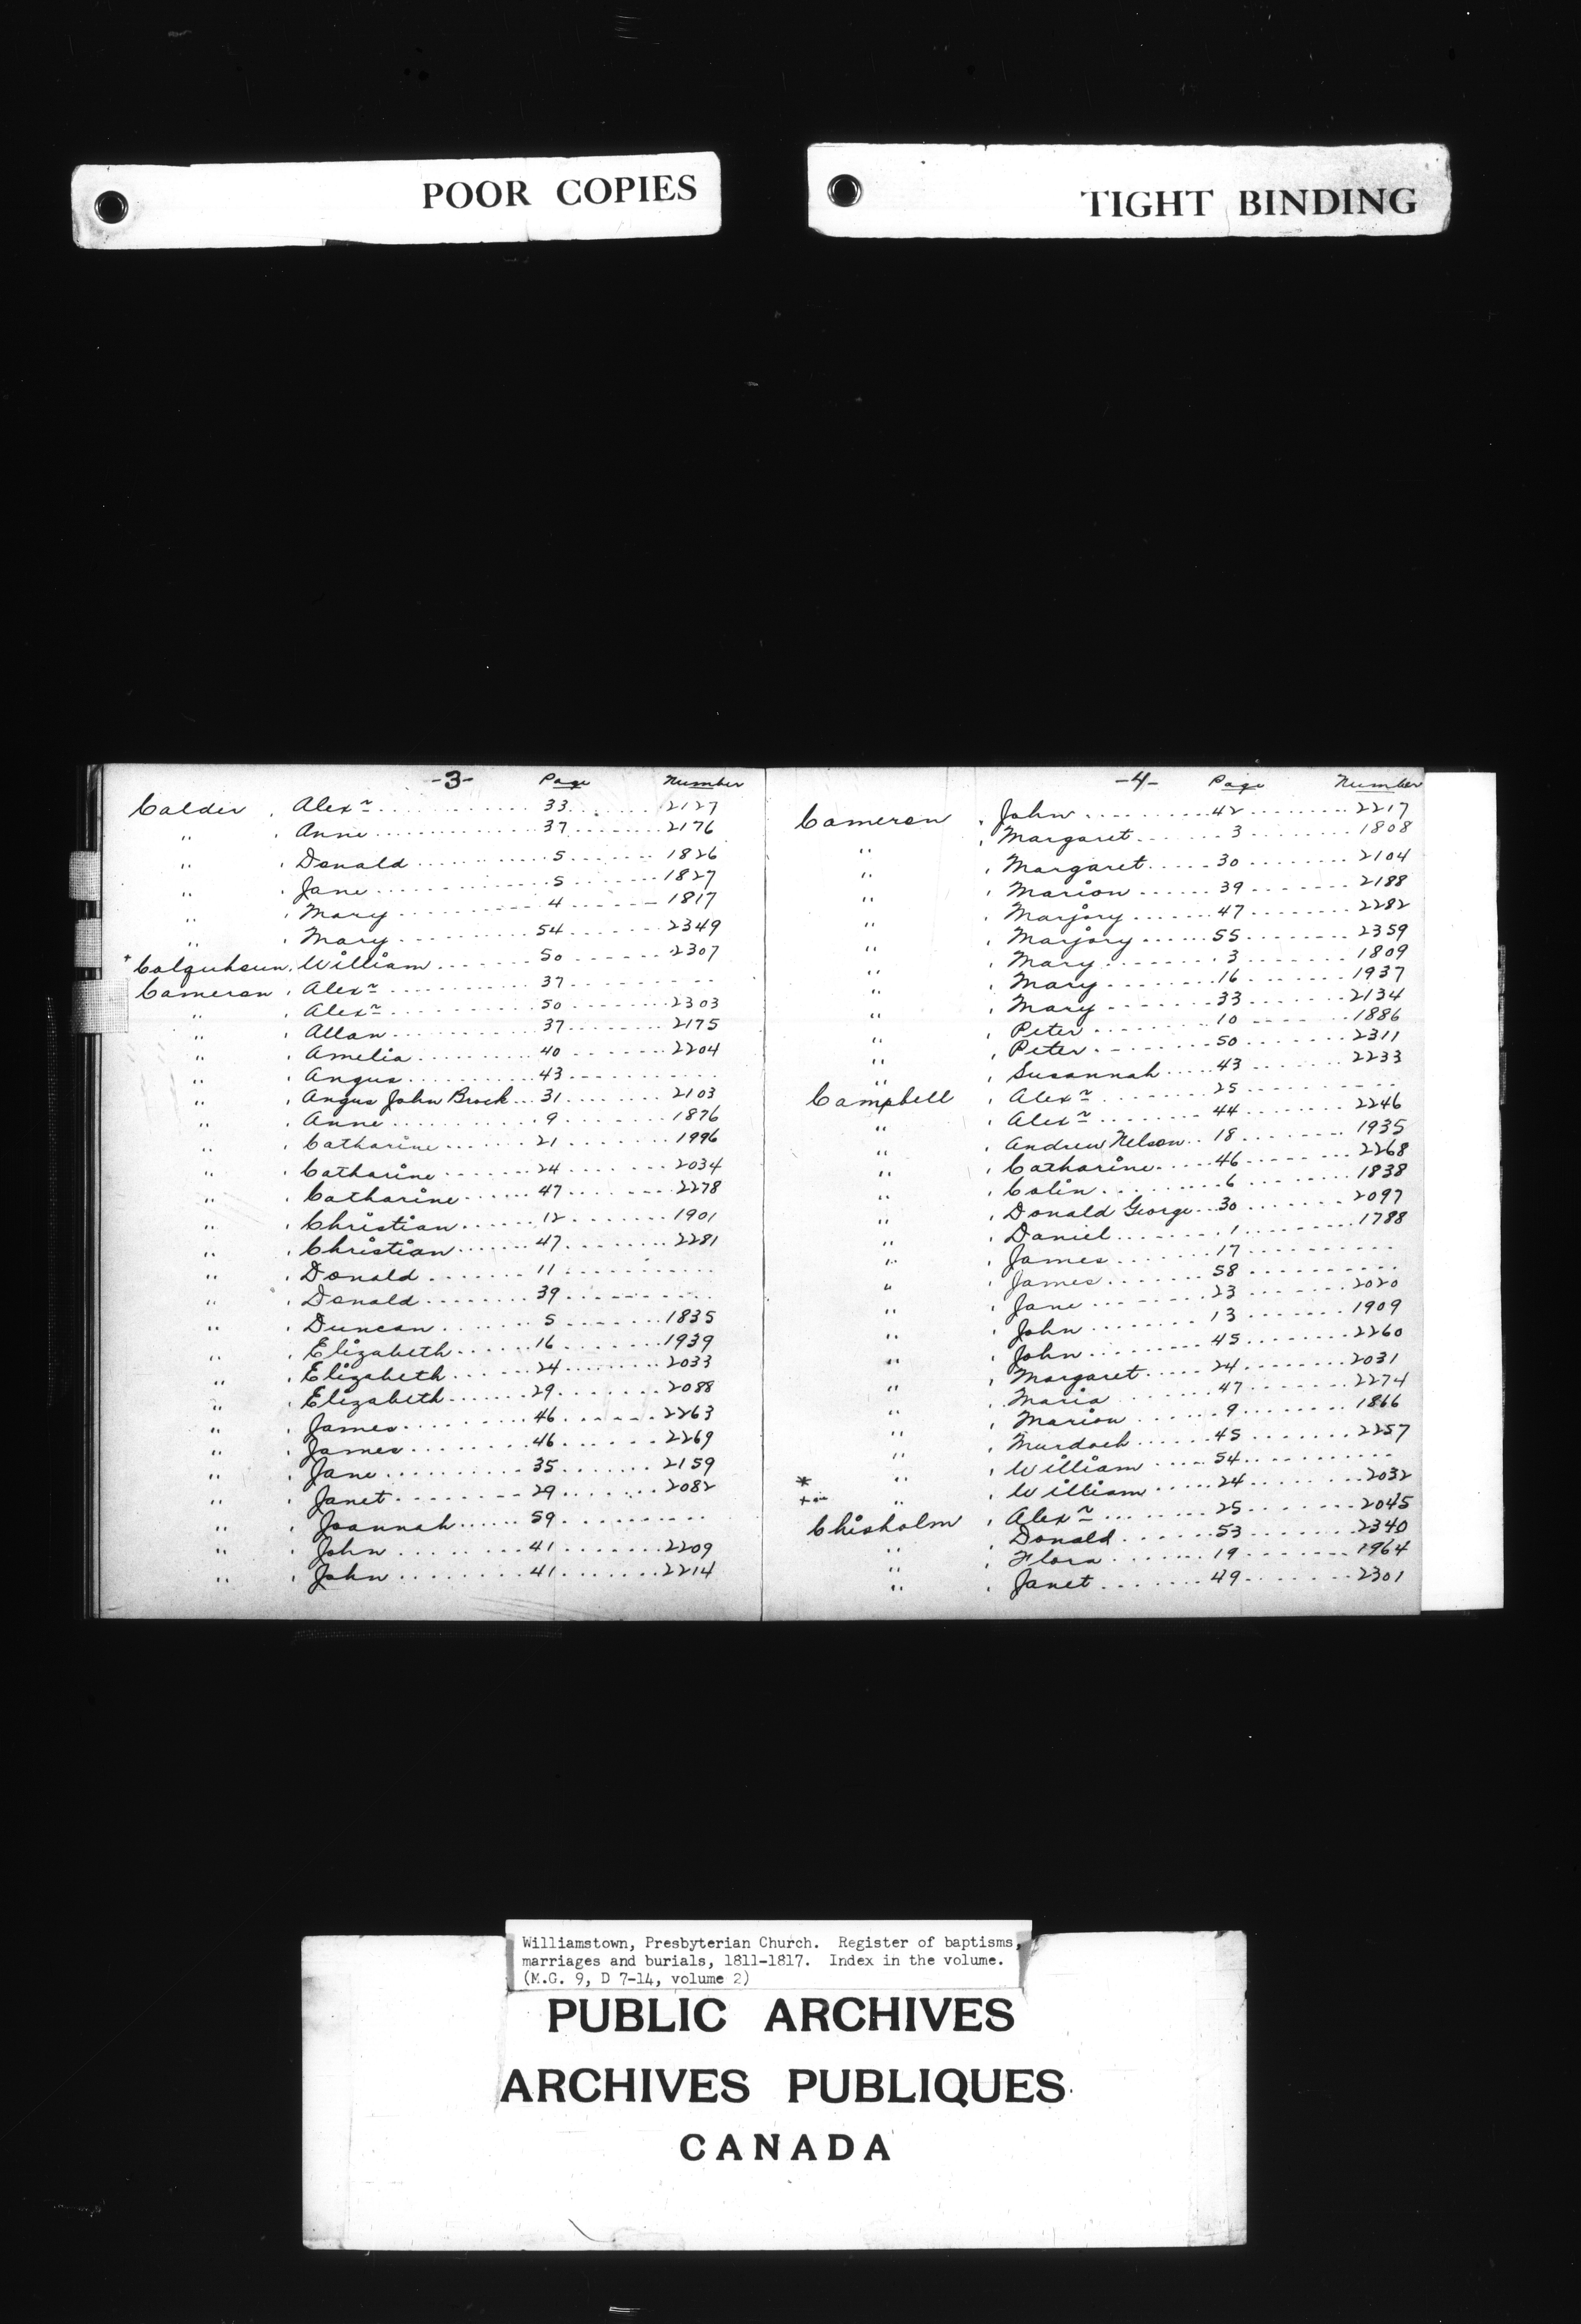 POOR COPIES
TIGHT BINDING
-3- Page Number
Calder, Alexr 33 2127
" , Anne 37 2176
" , Donald 5 1826
" , Jane 5 1827
" , Mary 4 1817
" , Mary 54 2349
* Colquhoun, William 50 2307
Cameron, Alexr 37
" , Alexr 50 2303
" , Allan 37 2175
" , Amelia 40 2204
" , Angus 43
" , Angus John Brock 31 2103
" , Anne 9 1876
" , Catharine 21 1996
" , Catharine 24 2034
" , Catharine 47 2278
" , Christian 12 1901
" , Christian 47 2281
" , Donald 11
" , Donald 39
" , Duncan 5 1835
" , Elizabeth 16 1939
" , Elizabeth 24 2033
" , Elizabeth 29 2088
" , James 46 2263
" , James 46 2269
" , Jane 35 2159
" , Janet 29 2082
" , Joannah 59
" , John 41 2209
" , John 41 2214
-4- Page Number
Cameron, John 42 2217
" , Margaret 3 1808
" , Margaret 30 2104
" , Marion 39 2188
" , Marjory 47 2282
" , Marjory 55 2359
" , Mary 3 1809
" , Mary 16 1937
" , Mary 33 2134
" , Peter 10 1886
" , Peter 50 2311
" , Susannah 43 2233
Campbell, Alexr 25
" , Alexr 44 2246
" , Andrew Nelson 18 1935
" , Catharine 46 2268
" , Colin 6 1838
" , Donald George 30 2097
" , Daniel 1 1788
" , James 17
" , James 58
" , Jane 23 2020
" , John 13 1909
" , John 45 2260
" , Margaret 24 2031
" , Maria 47 2274
" , Marion 9 1866
" , Murdoch 45 2257
* " , William 54
" , William 24 2032
Chisholm, Alexr 25 2045
" , Donald 53 2340
" , Flora 19 1964
" , Janet 49 2301
Williamstown, Presbyterian Church. Register of baptisms,
marriages and burials, 1811-1817. Index in the volume.
(M.G. 9, D 7-14, volume 2)
PUBLIC ARCHIVES
ARCHIVES PUBLIQUES
CANADA